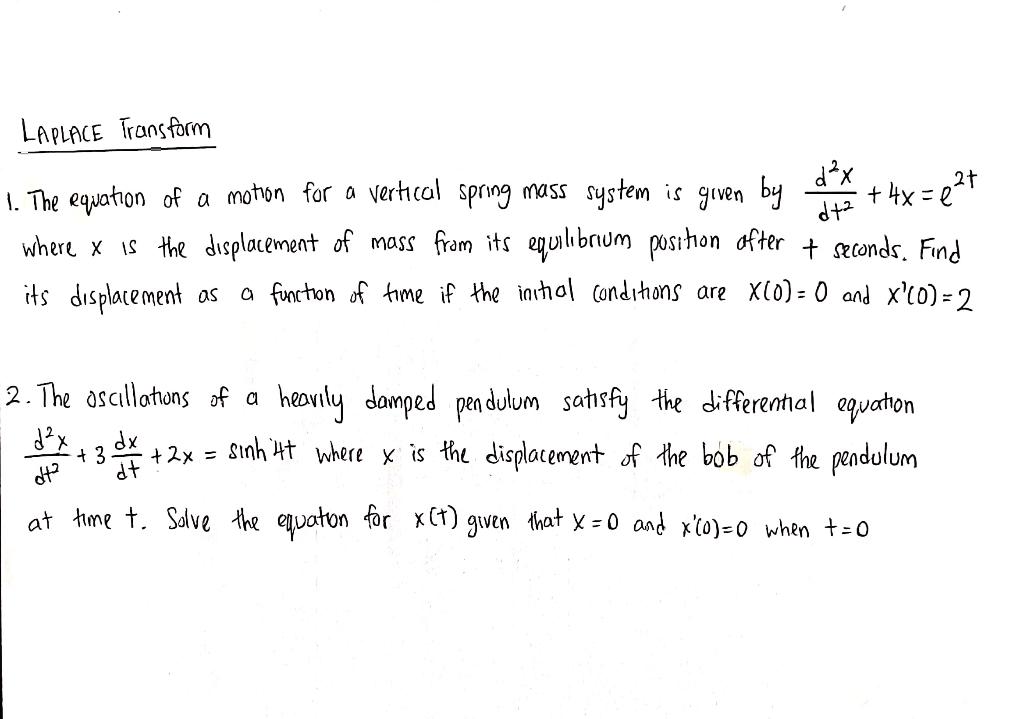 LAPLACE Transform
1. The equation of a motion for a vertical spring mass system is given by d²x/dt² + 4x = e^2t
where x is the displacement of mass from its equilibrium position after t seconds. Find
its displacement as a function of time if the initial conditions are X(0) = 0 and X'(0) = 2
2. The oscillations of a heavily damped pendulum satisfy the differential equation
d²x/dt² + 3 dx/dt + 2x = sinh 4t where x is the displacement of the bob of the pendulum
at time t. Solve the equation for x(t) given that x = 0 and x'(0)=0 when t=0